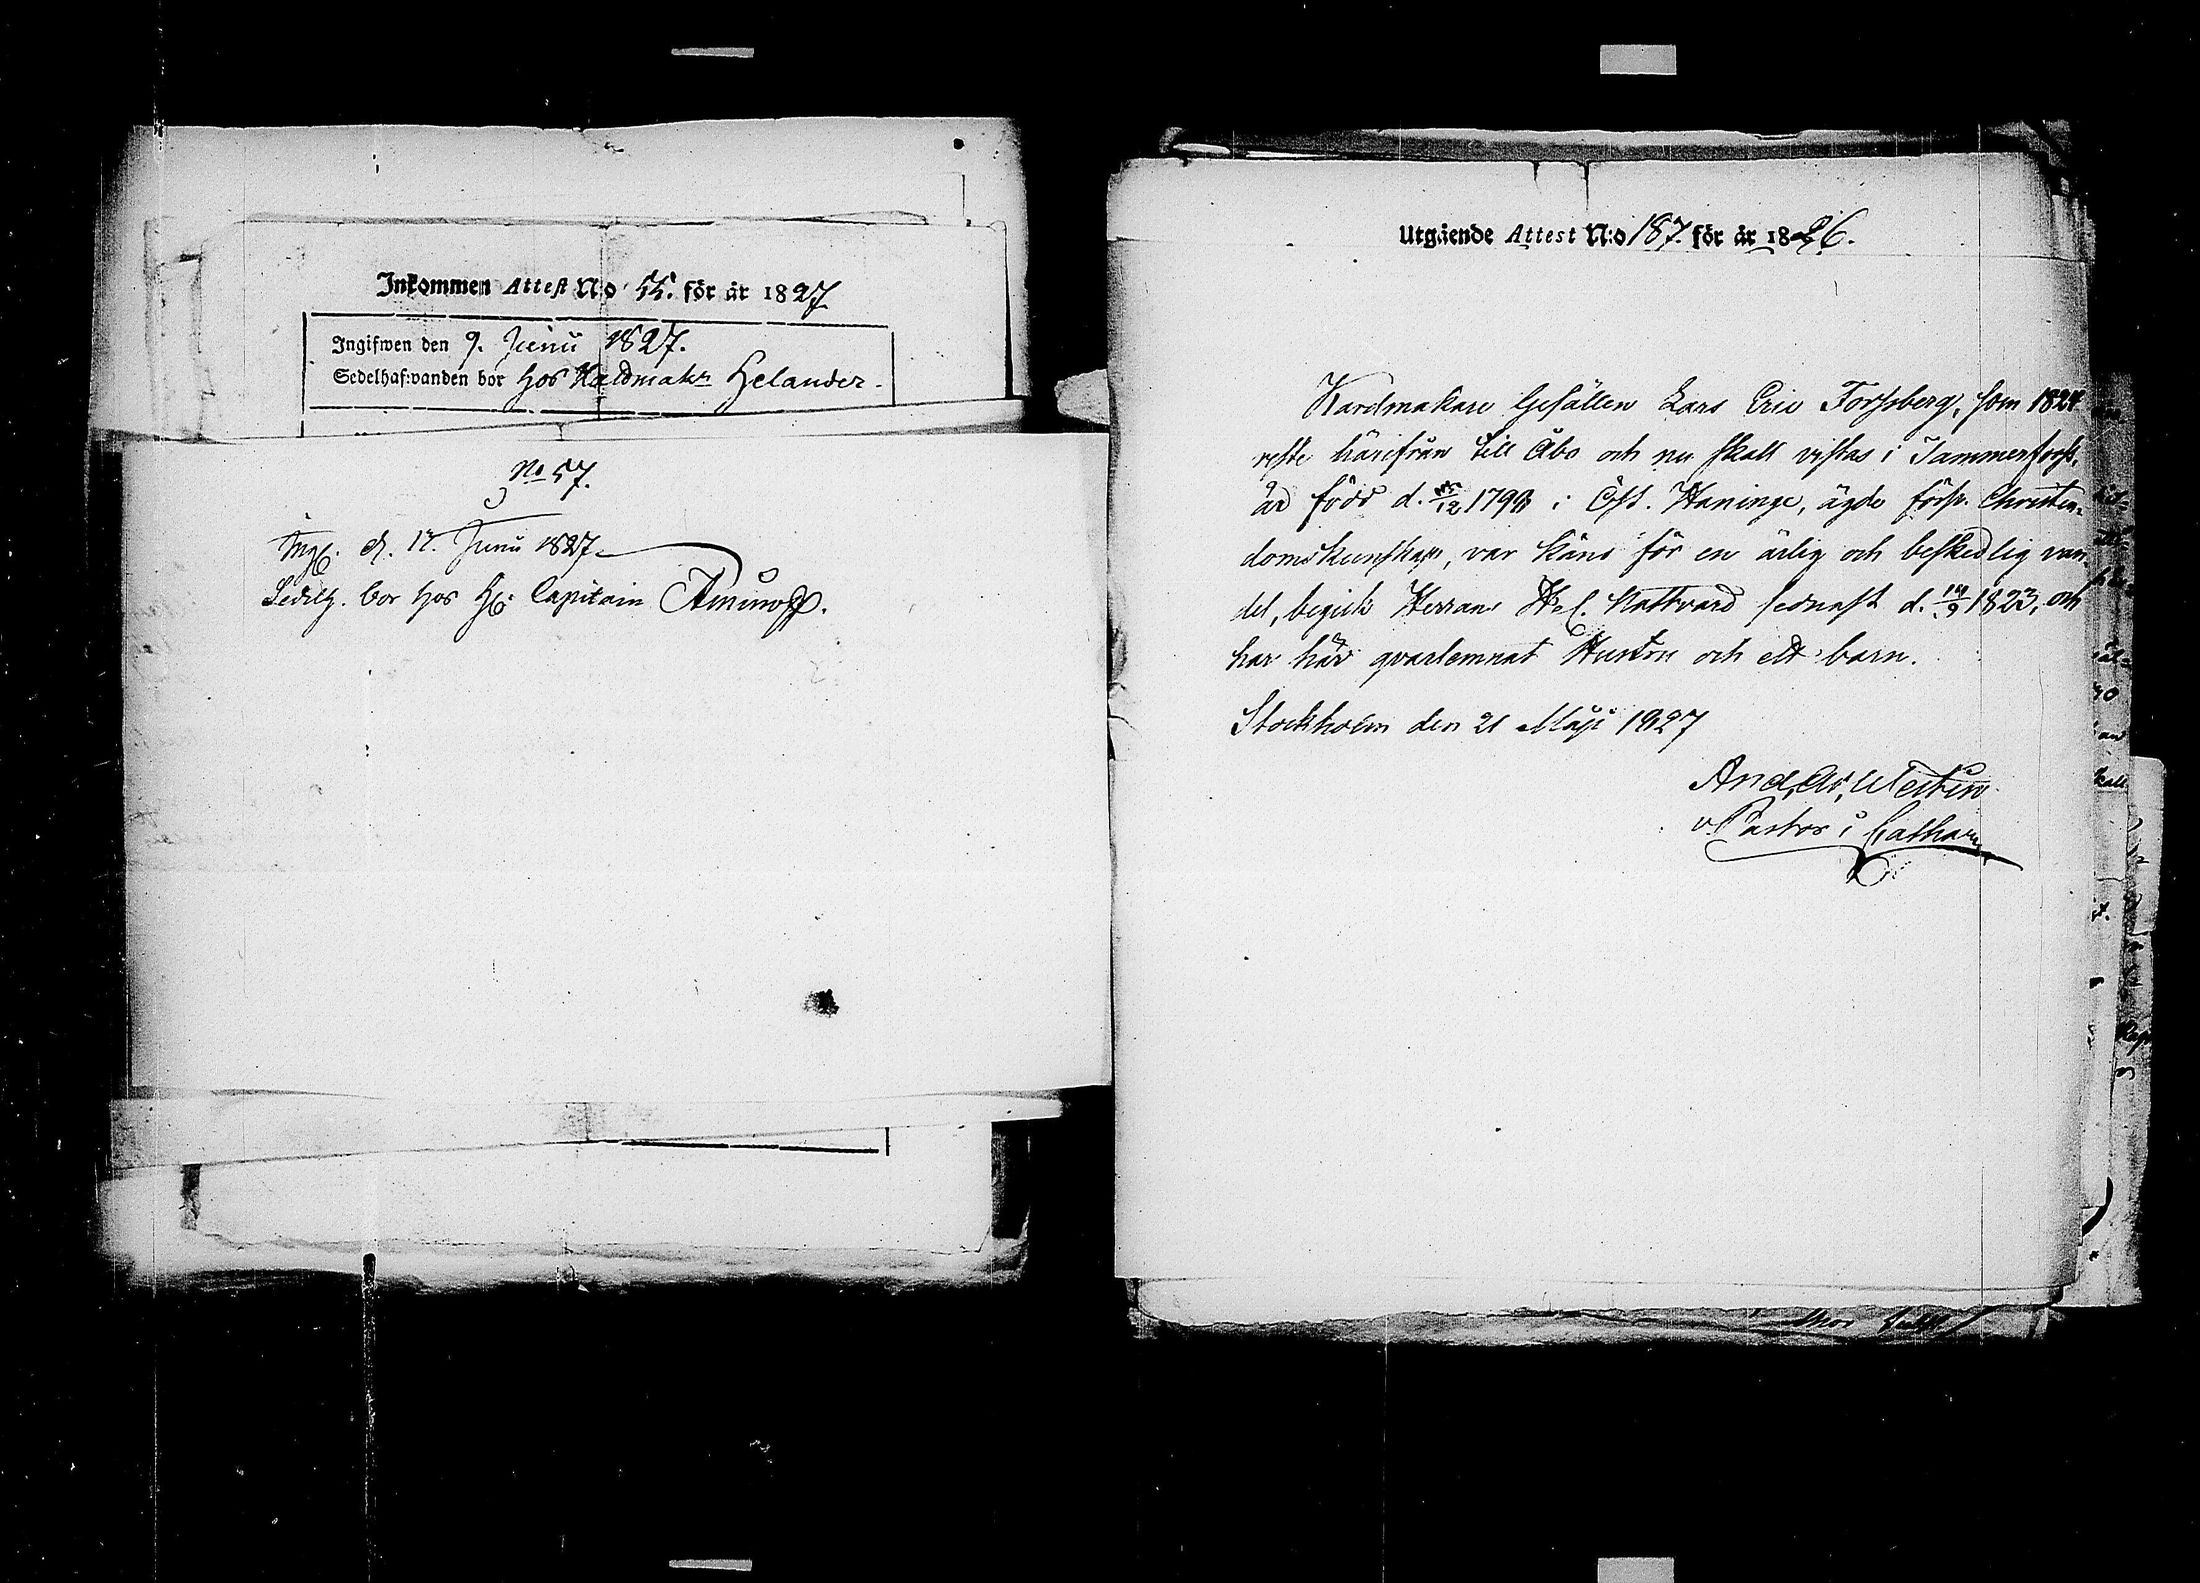 Inkommen Attest N:o 55. för år 1827
Ingifwen den 9. Junii 1827.
Sedelhafvanden bor hos Kardmakr Helander.
No 57.
Ing. d. 17. Junii 1827
Sedelh. bor hos H: Capitain Aminoff.
Utgående Attest N:o 187. för år 1826.
Kardmakare Gesällen Lars Eric Forssberg, som 1824
reste härifrån till Åbo och nu skall vistas i Tammerfors,
är född d. /12 179 i Öst. Haninge, ägde försv. Christen-
domskunskap, var känd för en ärlig och beskedlig van-
del, begick Herrans Hel. Nattvard sednast d. 14/9 1823, och
har här qvarlemnat Hustru och ett barn.
Stockholm den 21 Maji 1827
And. Ad. Westin
v. Pastor i Cathar.